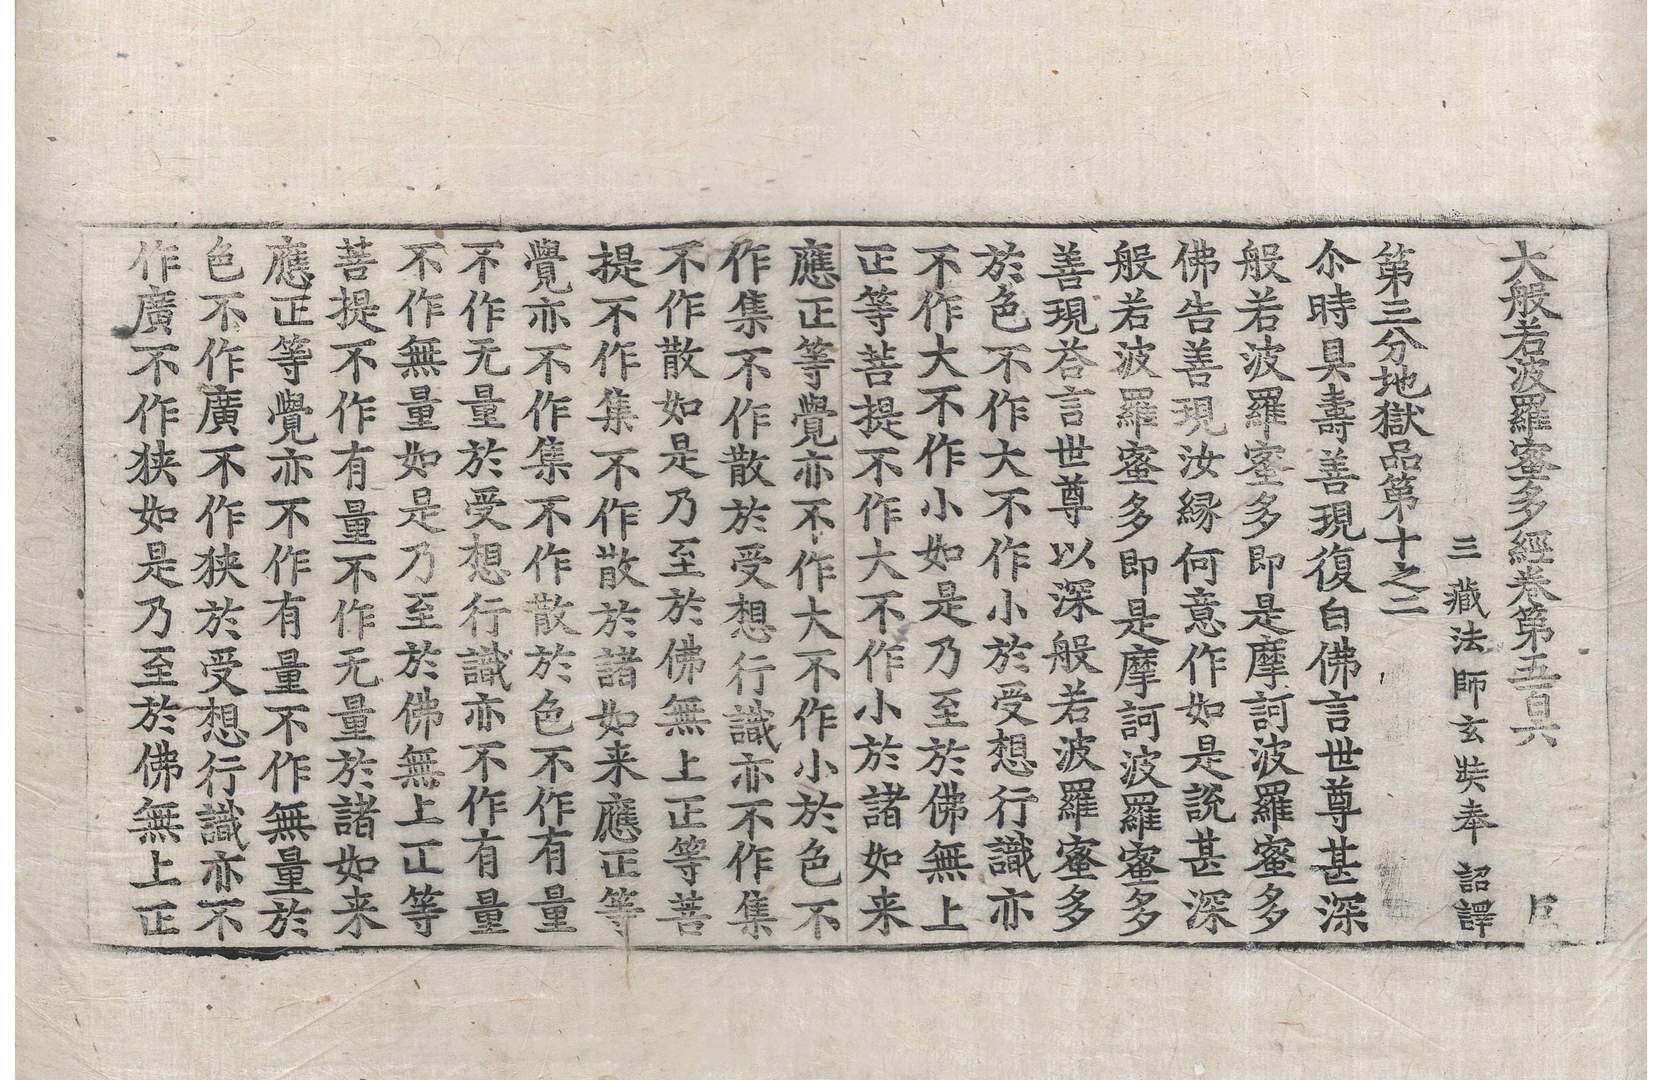 大般若波羅蜜多經卷第五百六 巨
三藏法師玄奘奉 詔譯
第三分地獄品第十之二
尒時具壽善現復白佛言世尊甚深
般若波羅蜜多即是摩訶波羅蜜多
佛告善現汝縁何意作如是說甚深
般若波羅蜜多即是摩訶波羅蜜多
善現荅言世尊以深般若波羅蜜多
於色不作大不作小於受想行識亦
不作大不作小如是乃至於佛無上
正等菩提不作大不作小於諸如来
應正等覺亦不作大不作小於色不
作集不作散於受想行識亦不作集
不作散如是乃至於佛無上正等菩
提不作集不作散於諸如来應正等
覺亦不作集不作散於色不作有量
不作无量於受想行識亦不作有量
不作無量如是乃至於佛無上正等
菩提不作有量不作无量於諸如来
應正等覺亦不作有量不作無量於
色不作廣不作狹於受想行識亦不
作廣不作狹如是乃至於佛無上正